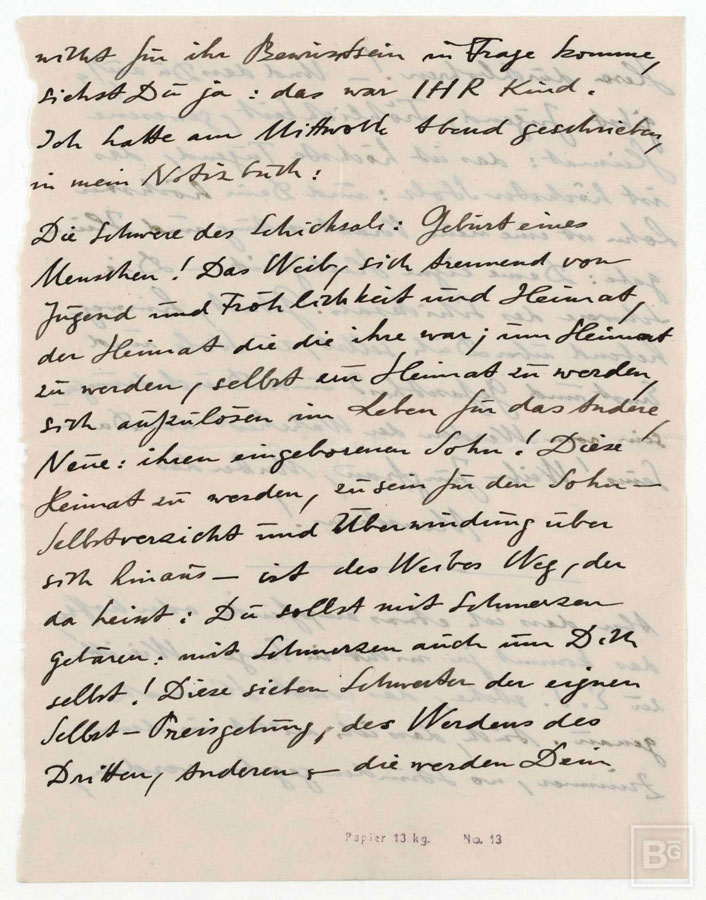 nicht für ihr Bewusstsein in Frage komme,
siehst Du ja: das war IHR Kind.
Ich hatte am Mittwoch Abend geschrieben,
in mein Notizbuch:
Die Schwere des Schicksals: Geburt eines
Menschen! Das Weib, sich trennend von
Jugend und Fröhlichkeit und Heimat,
der Heimat die die ihre war; um Heimat
zu werden, selbst ein Heimat zu werden,
sich aufzulösen im Leben für das Andere,
Neue: ihren eingeborenen Sohn! Diese
Heimat zu werden, zu sein für den Sohn —
Selbstverzicht und Überwindung über
sich hinaus — ist des Weibes Weg, der
da heisst: Du sollst mit Schmerzen
gebären: mit Schmerzen auch um Dich
selbst! Diese sieben Schwerter der eignen
Selbst-Preisgebung, des Werdens des
Dritten, Anderen — die werden Dein
Papier 13 kg. No. 13
BG